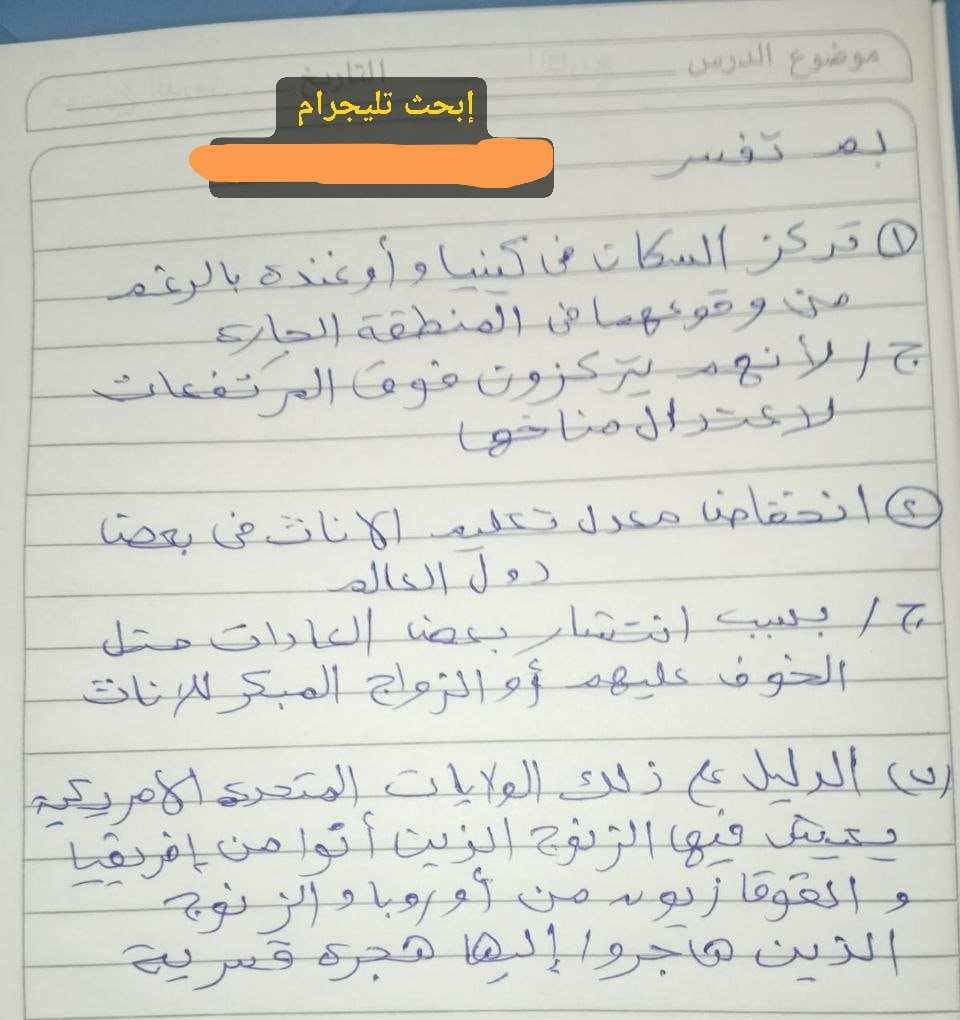 موضوع الدرس
التاريخ
إبحث تليجرام
بم تفسر
① تركز السكان فى كينيا و أوغنده بالرغم
من وقوعهما فى المنطقة الحاره
ج / لأنهم يتركزون فوق المرتفعات
لاعتدال مناخها
② انخفاض معدل تعليم الاناث فى بعض
دول العالم
ج / بسبب انتشار بعض العادات مثل
الخوف عليهم أو الزواج المبكر للاناث
(ب) الدليل على ذلك الولايات المتحده الأمريكية
يعيش فيها الزنوج الذين أتوا من إفريقيا
و القوقازيون من أوروبا و الزنوج
الذين هاجروا إليها هجرة قسرية